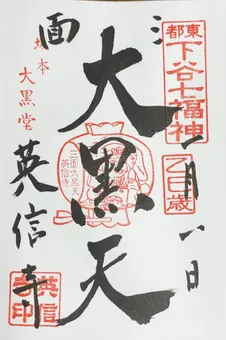 東都
下谷七福神
乙巳歳
一月八日
三面
大黒天
三面大黒天
英信寺
坂本
大黒堂
英信寺
英信
寺印